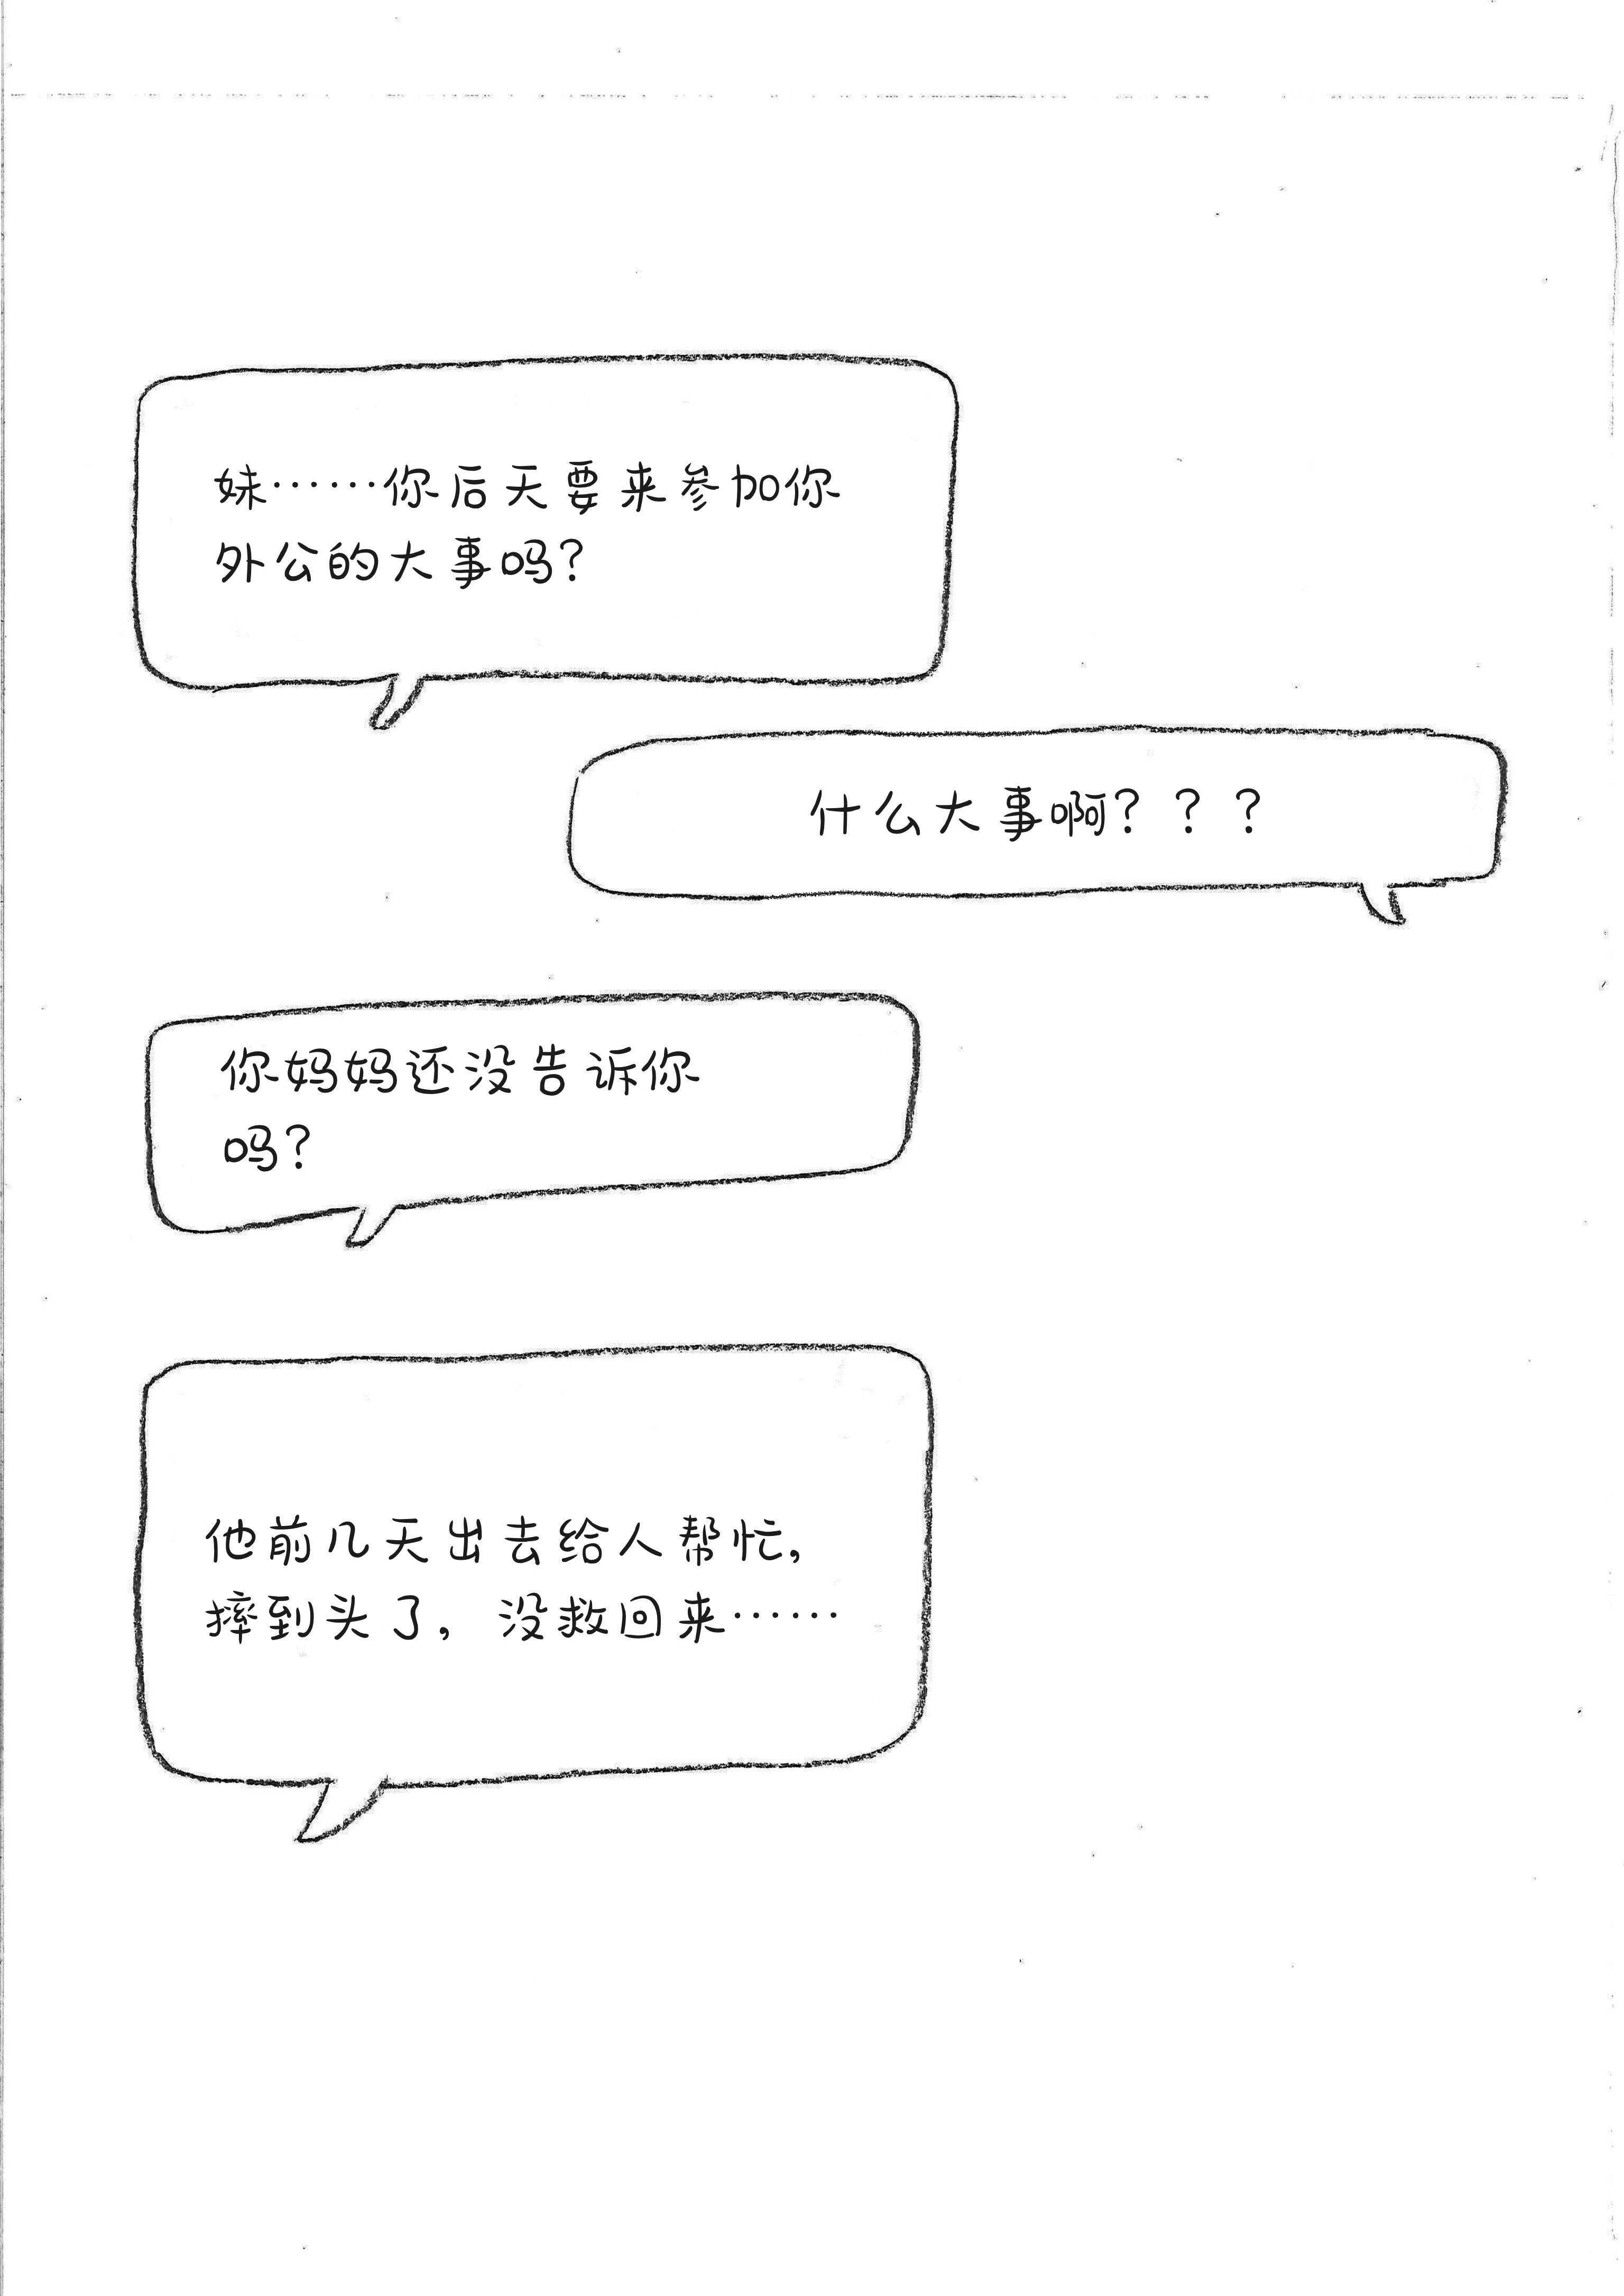 妹……你后天要来参加你
外公的大事吗？
什么大事啊？？？
你妈妈还没告诉你
吗？
他前几天出去给人帮忙，
摔到头了，没救回来……